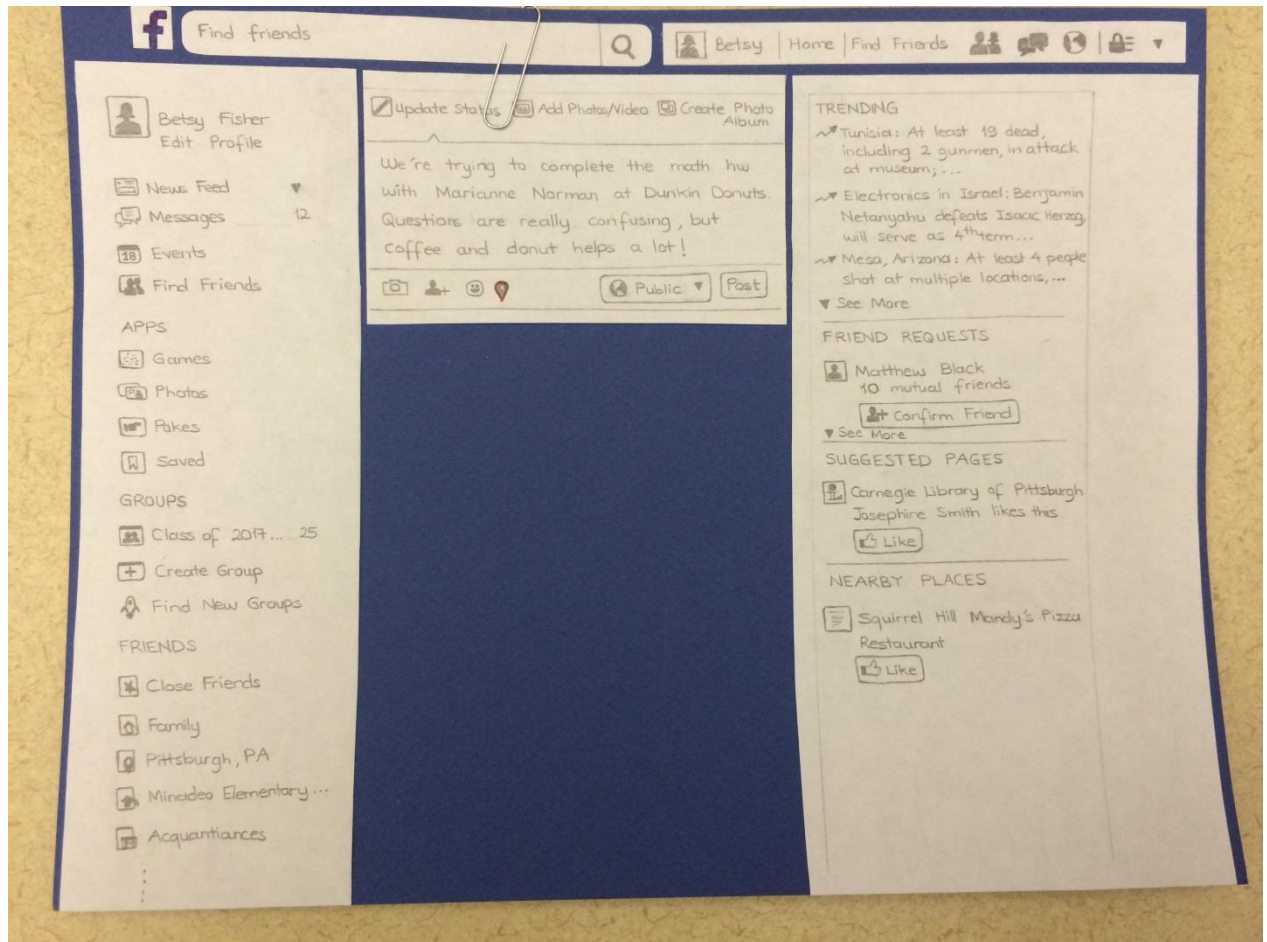 f
Find friends
Betsy | Home | Find Friends
Betsy Fisher
Edit Profile
News Feed
Messages 12
18 Events
Find Friends
APPS
Games
Photos
Pokes
Saved
GROUPS
Class of 2017... 25
Create Group
Find New Groups
FRIENDS
Close Friends
Family
Pittsburgh, PA
Minadeo Elementary...
Acquantiances
Update Status Add Photos/Video Create Photo
Album
We're trying to complete the math hw
with Marianne Norman at Dunkin Donuts.
Questions are really confusing, but
coffee and donut helps a lot!
Public Post
TRENDING
Tunisia: At least 19 dead,
including 2 gunmen, in attack
at museum; ...
Electronics in Israel: Benjamin
Netanyahu defeats Isaac Herzog,
will serve as 4th term...
Mesa, Arizona: At least 4 people
shot at multiple locations,...
See More
FRIEND REQUESTS
Matthew Black
10 mutual friends
Confirm Friend
See More
SUGGESTED PAGES
Carnegie Library of Pittsburgh
Josephine Smith likes this
Like
NEARBY PLACES
Squirrel Hill Mandy's Pizza
Restaurant
Like